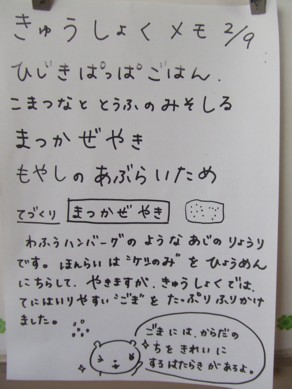 きゅうしょくメモ 2/9
ひじきぱっぱごはん.
こまつなととうふのみそしる
まつかぜやき
もやしのあぶらいため
てづくり まつかぜやき
わふうハンバーグのようなあじのりょうり
です。ほんらいは"ケシのみ"をひょうめん
にちらして、やきますが、きゅうしょくでは、
てにはいりやすい"ごま"をたっぷりふりかけ
ました。
ごまには、からだの
ちをきれいに
するはたらきがあるよ。